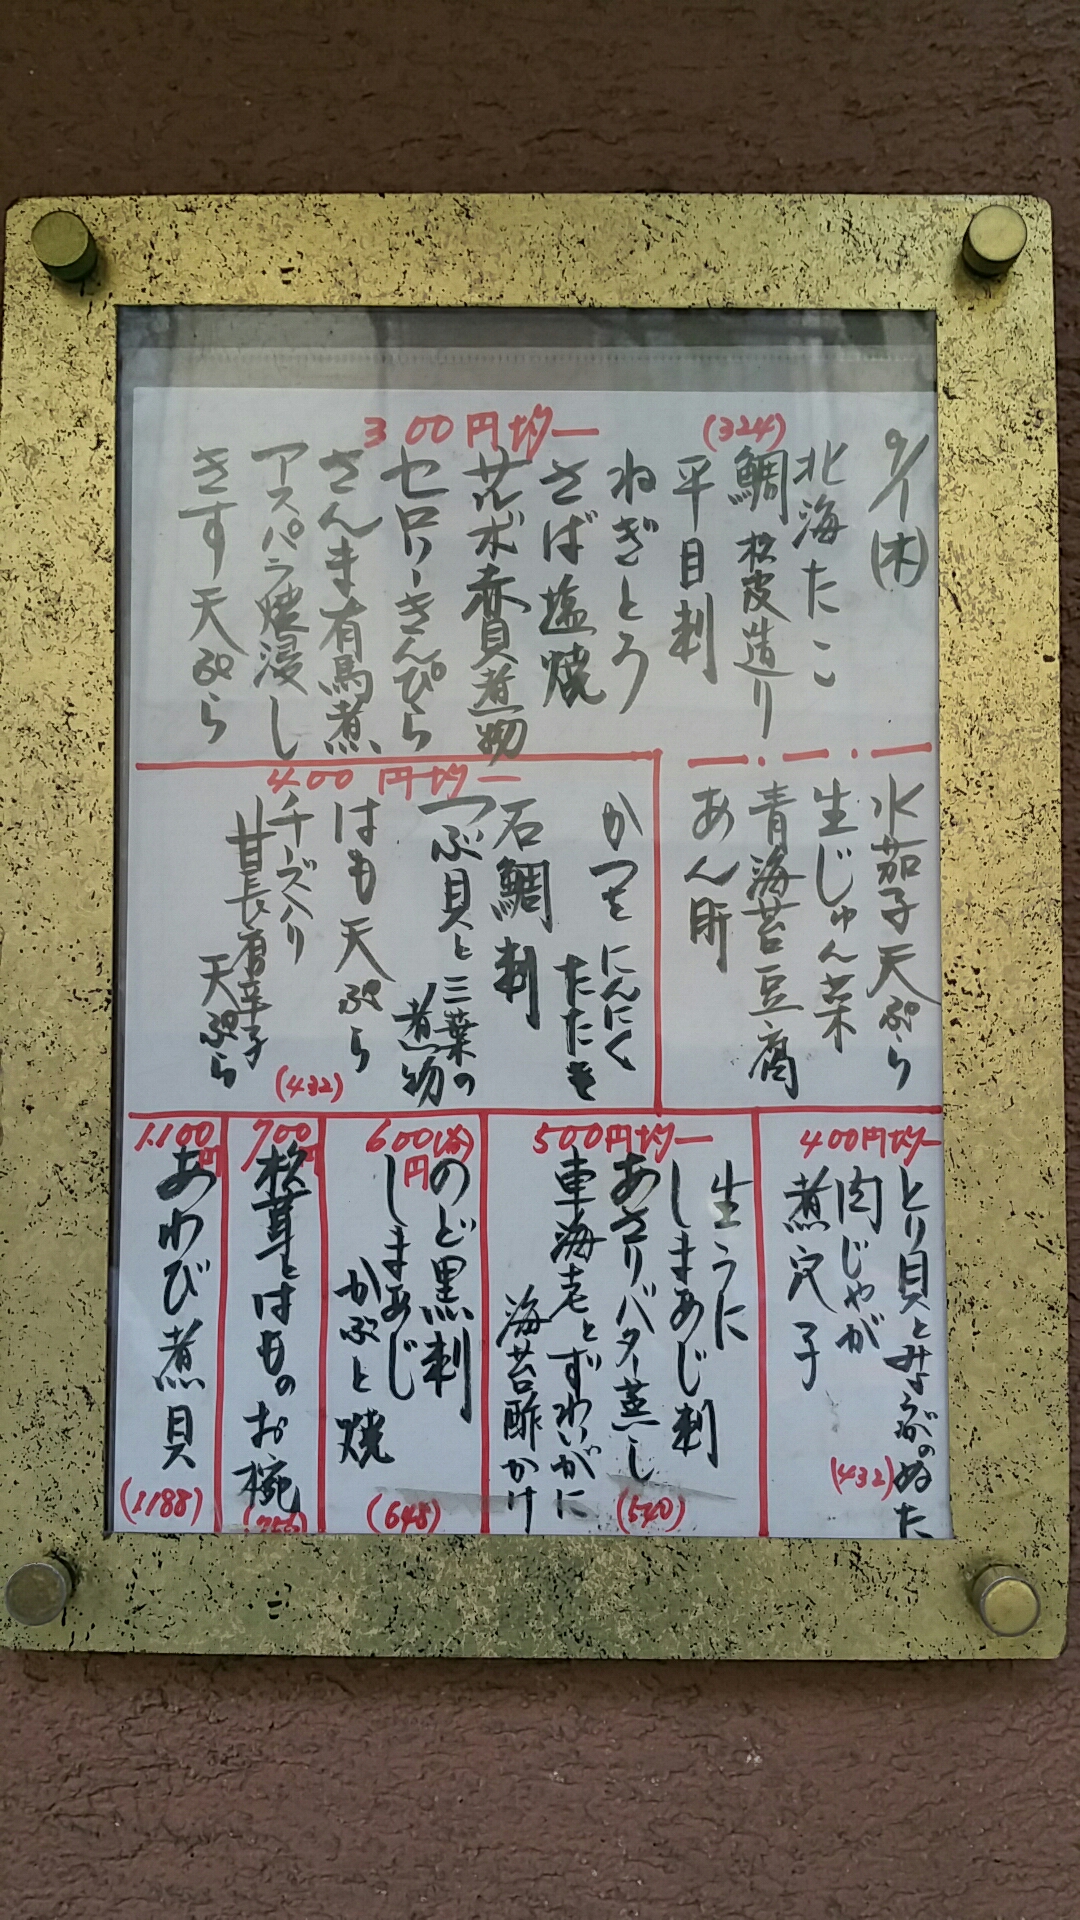 9/1(木)
300円均一
(324)
北海たこ
鯛松皮造り
平目刺
ねぎとろ
さば塩焼
サルボ赤貝煮物
セロリーきんぴら
さんま有馬煮
アスパラ焼浸し
きす天ぷら
水茄子天ぷら
生じゅん菜
青海苔豆腐
あん肝
400円均一
かつを にんにく
たたき
石鯛刺
つぶ貝と三葉の
煮物
はも天ぷら
チーズ入り
甘長唐辛子
天ぷら
(432)
400円均一
とり貝とみょうがのぬた
肉じゃが
煮穴子
(432)
500円均一
生うに
しまあじ刺
あさりバター蒸し
車海老とずわいがに
海苔酢かけ
(540)
600(各)
円
のど黒刺
しまあじ
かぶと焼
(648)
700円
松茸とはものお椀
(756)
1.100円
あわび煮貝
(1.188)